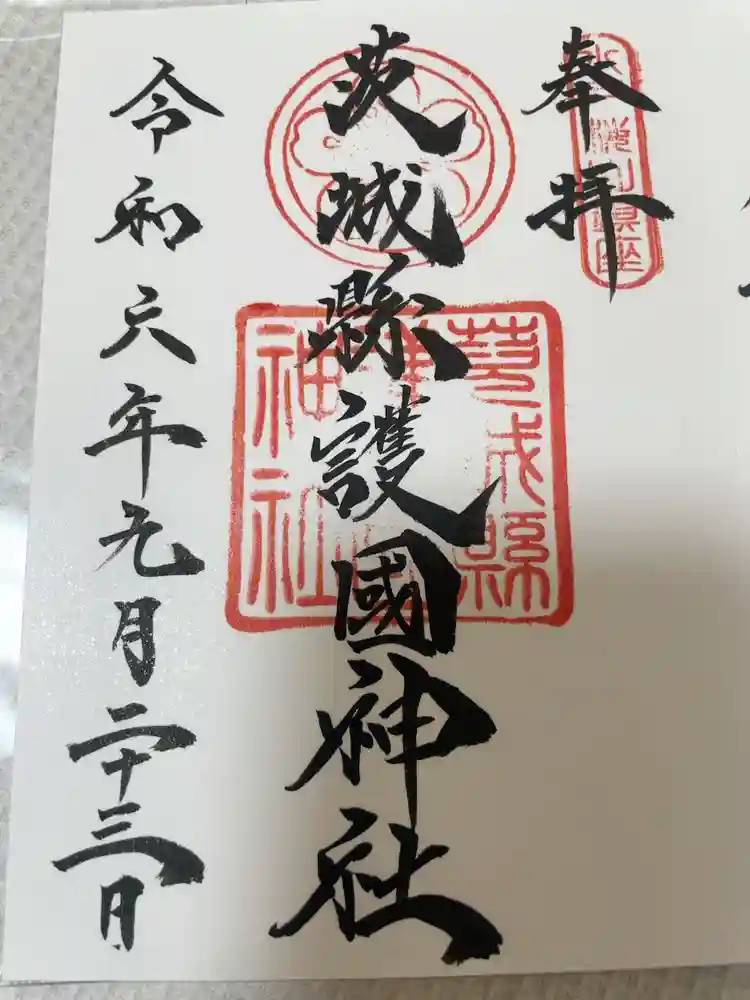 奉拝
茨城縣護國神社
令和六年九月二十三日
鎮座
茨城縣
神社